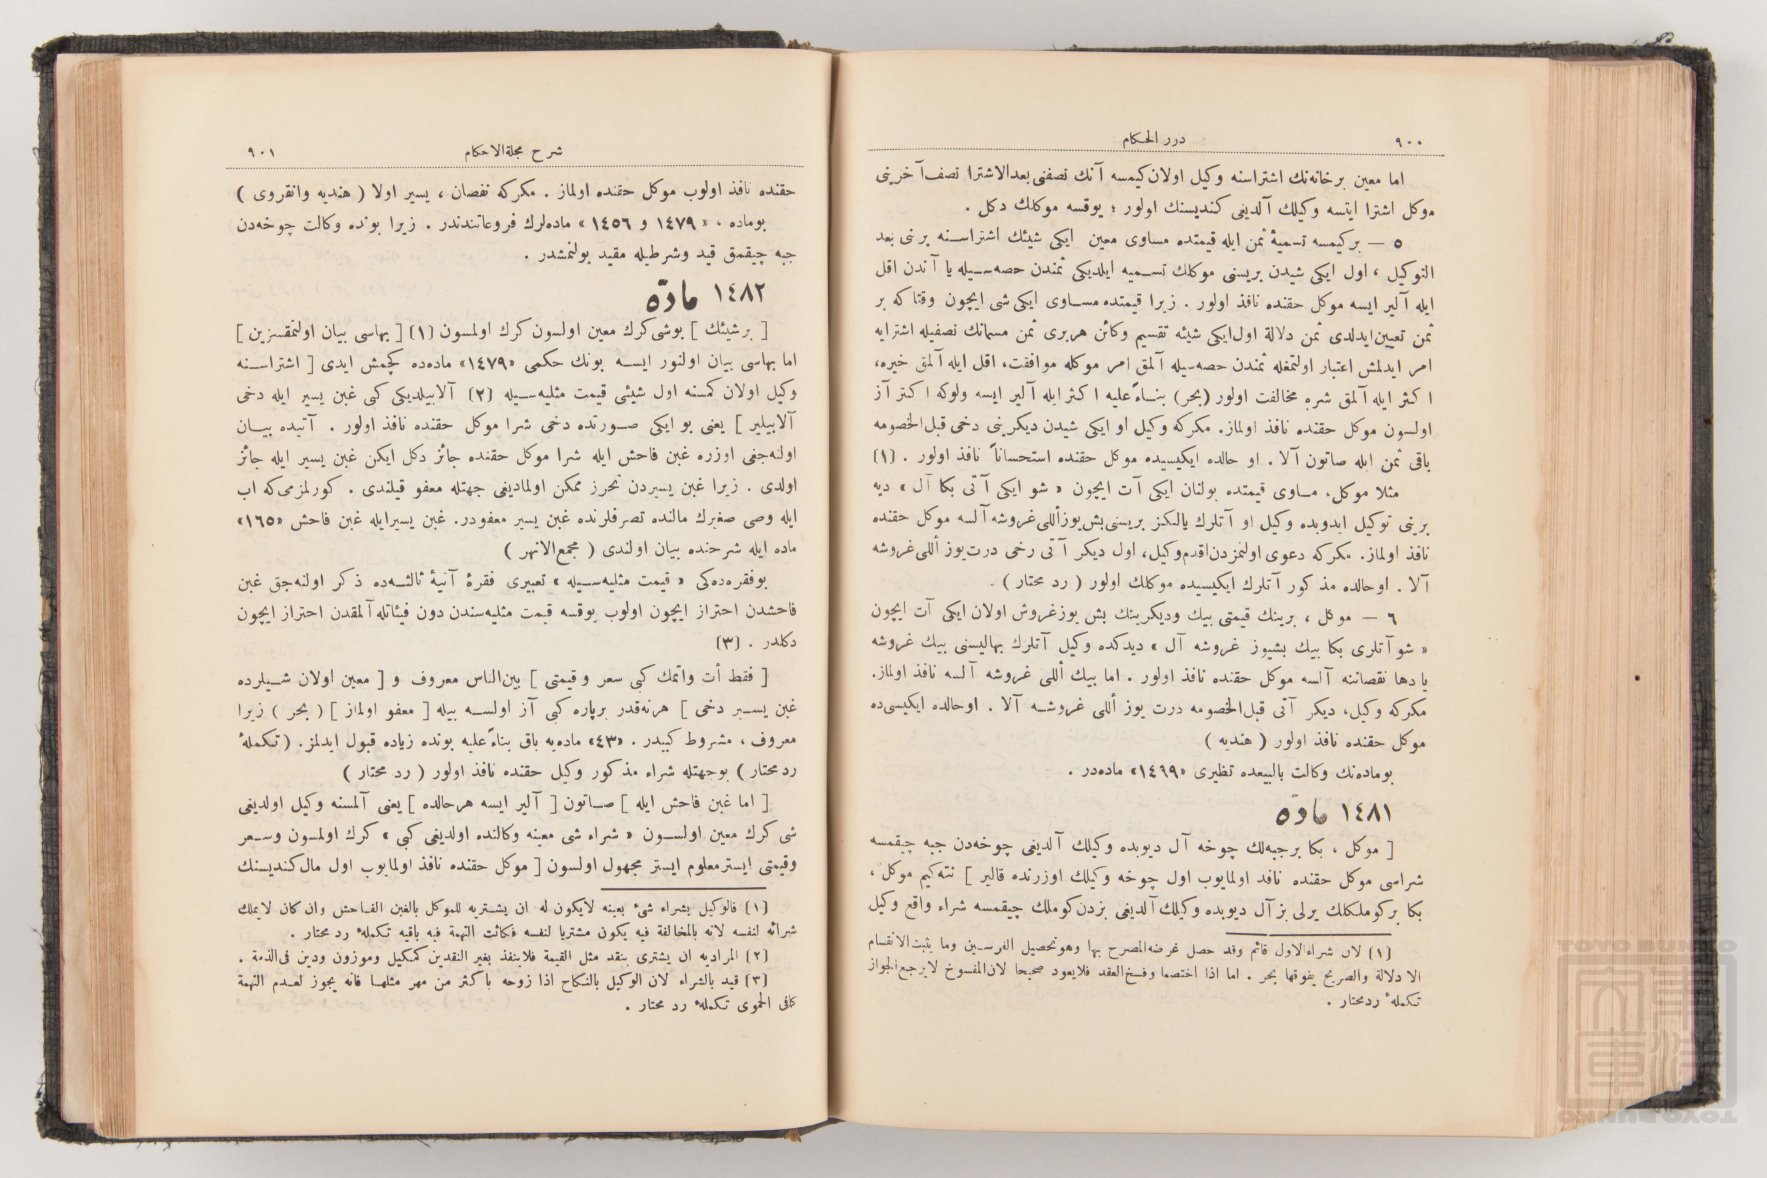 ٩٠٠ درر الحكام
اما معين برخانه‌نك اشتراسنه وكيل اولان كيمسه آنك نصفنى بعدالاشترا نصف آخرينى
موكل اشترا ايتسه وكيلك آلديغى كنديسنك اولور ؛ يوقسه موكلك دكل .
٥ — بركيمسه تسميهٔ ثمن ايله قيمتده مساوى معين ايكى شيئك اشتراسنه برنى بعد
التوكيل ، اول ايكى شيدن بريسنى موكلك تسميه ايلديكى ثمندن حصه‌سيله يا آندن اقل
ايله آلير ايسه موكل حقنده نافذ اولور . زيرا قيمتده مساوى ايكى شى ايچون وقتا كه بر
ثمن تعيين ايدلدى ثمن دلالة اول ايكى شيئه تقسيم وكائن هربرى ثمن مسمانك نصفيله اشترايه
امر ايدلمش اعتبار اولنمغله ثمندن حصه‌سيله آلمق امر موكله موافقت، اقل ايله آلمق خيره،
اكثر ايله آلمق شره مخالفت اولور (بحر) بناءً عليه اكثر ايله آلير ايسه ولوكه اكثر آز
اولسون موكل حقنده نافذ اولماز. مكركه وكيل او ايكى شيدن ديكرينى دخى قبل‌الخصومه
باقى ثمن ايله صاتون آلا . او حالده ايكيسيده موكل حقنده استحساناً نافذ اولور . (١)
مثلا موكل، مساوى قيمتده بولنان ايكى آت ايچون « شو ايكى آتى بكا آل » ديه
برنى توكيل ايدوبده وكيل او آتلرك يالكز بريسنى بش يوز اللى غروشه آلسه موكل حقنده
نافذ اولماز. مكركه دعوى اولنمزدن اقدم وكيل، اول ديكر آتى دخى درت يوز اللى غروشه
آلا . اوحالده مذكور آتلرك ايكيسيده موكلك اولور ( رد محتار ) .
٦ — موكل ، برينك قيمتى بيك وديكرينك بش يوز غروش اولان ايكى آت ايچون
« شو آتلرى بكا بيك بشيوز غروشه آل » ديدكده وكيل آتلرك بهاليسنى بيك غروشه
يا دها نقصاننه آلسه موكل حقنده نافذ اولور . اما بيك اللى غروشه آلسه نافذ اولماز.
مكركه وكيل، ديكر آتى قبل‌الخصومه درت يوز اللى غروشه آلا . اوحالده ايكيسى‌ده
موكل حقنده نافذ اولور ( هنديه )
بوماده‌نك وكالت بالبيعده نظيرى «١٤٦٩» ماده‌در .
١٤٨١ مادّه
[ موكل ، بكا برجبه‌لك چوخه آل ديوبده وكيلك آلديغى چوخه‌دن جبه چيقمسه
شراسى موكل حقنده نافذ اولمايوب اول چوخه وكيلك اوزرنده قالير ] نته‌كيم موكل ،
بكا بر كوملكلك يرلى بز آل ديوبده وكيلك آلديغى بزدن كوملك چيقمسه شراء واقع وكيل
(١) لان شراءالاول قائم وقد حصل غرضه‌المصرح بها وهوتحصيل الفرسين وما يثبت‌الانقسام
الا دلالة والصريح يفوقها بحر . اما اذا اختصما وفسخ‌العقد فلايعود صحيحا لان‌المفسوخ لايرجع‌الجواز
تكملهٔ ردمحتار .
شرح مجلة‌الاحكام ٩٠١
حقنده نافذ اولوب موكل حقنده اولماز . مكركه نقصان ، يسير اولا ( هنديه وانقروى )
بوماده ، « ١٤٧٩ و ١٤٥٦ » ماده‌لرك فروعاتندندر . زيرا بونده وكالت چوخه‌دن
جبه چيقمق قيد وشرطيله مقيد بولنمشدر .
١٤٨٢ مادّه
[ برشيئك ] بوشى كرك معين اولسون كرك اولمسون (١) [ بهاسى بيان اولنمقسزين ]
اما بهاسى بيان اولنور ايسه بونك حكمى «١٤٧٩» ماده‌ده كچمش ايدى [ اشتراسنه
وكيل اولان كمسنه اول شيئى قيمت مثليه‌سيله (٢) آلابيلديكى كبى غبن يسير ايله دخى
آلابيلير ] يعنى بو ايكى صورتده دخى شرا موكل حقنده نافذ اولور . آتيده بيان
اولنه‌جغى اوزره غبن فاحش ايله شرا موكل حقنده جائز دكل ايكن غبن يسير ايله جائز
اولدى . زيرا غبن يسيردن تحرز ممكن اولماديغى جهتله معفو قيلندى . كورلمزمى‌كه اب
ايله وصى صغيرك مالنده تصرفلرنده غبن يسير معفودر. غبن يسيرايله غبن فاحش «١٦٥»
ماده ايله شرحنده بيان اولندى ( مجمع‌الانهر )
بوفقره‌ده‌كى « قيمت مثليه‌سيله » تعبيرى فقرهٔ آتيهٔ ثالثه‌ده ذكر اولنه‌جق غبن
فاحشدن احتراز ايچون اولوب يوقسه قيمت مثليه‌سندن دون فيئاتله آلمقدن احتراز ايچون
دكلدر . (٣)
[ فقط أت واتمك كبى سعر وقيمتى ] بين‌الناس معروف و [ معين اولان شيلرده
غبن يسير دخى ] هرنه‌قدر برپاره كبى آز اولسه بيله [ معفو اولماز ] ( بحر ) زيرا
معروف ، مشروط كبيدر . «٤٣» ماده‌يه باق بناءً عليه بونده زياده قبول ايدلمز. ( تكملهٔ
رد محتار ) بوجهتله شراء مذكور وكيل حقنده نافذ اولور ( رد محتار )
[ اما غبن فاحش ايله ] صاتون [ آلير ايسه هرحالده ] يعنى آلمسنه وكيل اولديغى
شى كرك معين اولسون « شراء شى معينه وكالتده اولديغى كبى » كرك اولمسون وسعر
وقيمتى ايسترمعلوم ايستر مجهول اولسون [ موكل حقنده نافذ اولمايوب اول مال كنديسنك
(١) فالوكيل بشراء شئ بعينه لايكون له ان يشتريه للموكل بالغبن الفاحش وان كان لايملك
شرائه لنفسه لانه بالمخالفة فيه يكون مشتريا لنفسه فكانت التهمة فيه باقيه تكملهٔ رد محتار .
(٢) المراديه ان يشترى بنقد مثل القيمة فلاينفذ بغير النقدين كمكيل وموزون ودين فى‌الذمة .
(٣) قيد بالشراء لان الوكيل بالنكاح اذا زوجه باكثر من مهر مثلها فانه يجوز لعدم التهمة
كافى الحموى تكملهٔ رد محتار .
TOYO BUNKO
TOYO BUNKO